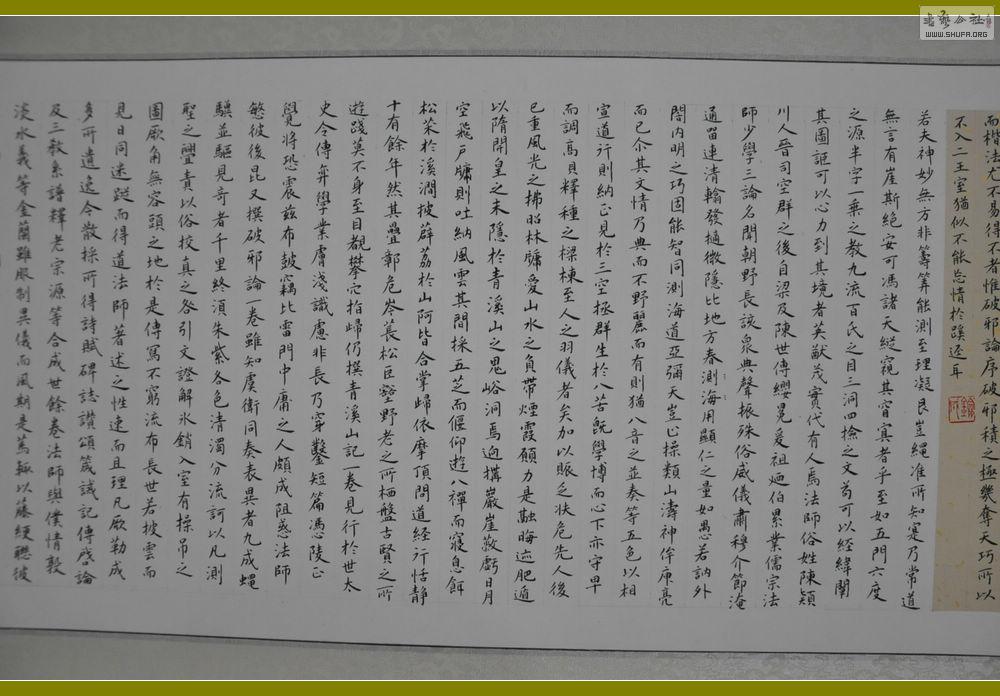 而楷法尤不易得不者惟破邪論序破邪積之極幾奪天巧所以
不入二王室猶似不能忘情於蹊逕耳
若夫神妙無方非籌算能測至理凝邈豈繩准所知寔乃常道
無言有崖斯絕安可馮諸天縱窺其窅冥者乎至如五門六度
之源半字一乘之教九流百氏之目三洞四撿之文苟可以經緯闡
其圖詎可以心力到其境者英猷茂實代有人焉法師俗姓陳潁
川人晉司空群之後自梁及陳世傳纓冕爰祖炟伯累業儒宗法
師少學三論名聞朝野長該眾典聲振殊俗威儀肅穆介節淹
通留連清翰發擿微隱比地方春測海用顯仁之量如愚若訥外
闇內明之巧固能智同測海道亞彌天豈止操類山濤神侔庾亮
而已介其文情乃典而不野麗而有則猶八音之並奏等五色以相
宣道行則納正見於三空極群生於八苦既學博而心下亦守卑
而調高貝釋種之樑棟至人之羽儀者矣加以賑乏扶危先人後
己重風光之拂照林牖愛山水之負帶煙霞願力是融晦迹肥遁
以隋開皇之末隱於青溪山之鬼峪洞焉迴構巖崖薮虧日月
空飛戶牖則吐納風雲其間採五芝而偃仰遊八禪而寢息餌
松朮於溪澗披薜荔於山阿皆合掌歸依摩頂問道經行恬靜
十有餘年然其疊鄣危岑長松巨壑野老之所栖盤古賢之所
遊踐莫不身至目覩攀穴指歸仍撰青溪山記一卷見行於世太
史令傅弈學業膚淺識慮非長乃穿鑿短篇馮陵正
覺將恐震茲布皷竊比雷門中庸之人頗成阻惑法師
慜彼後昆又撰破邪論一卷雖知虞衛同奏表異者九成蠅
驥並驅見奇者千里終湏朱紫各色清濁分流訶以凡測
聖之舋責以俗挍真之咎引文證解氷銷入室有操吊之
圖厥角無容頭之地於是傳寫不窮流布長世若披雲而
見日同迷蹤而得道法師著述之性速而且理凡厥勒成
多所遺逸今散採所得詩賦碑誌讚頌箴誡記傳啓論
及三教系譜釋老宗源等合成世餘卷法師與僕情敦
淡水義等金蘭雖服制異儀而風期是篤輙以藤綆聦彼
WWW.SHUFA.ORG